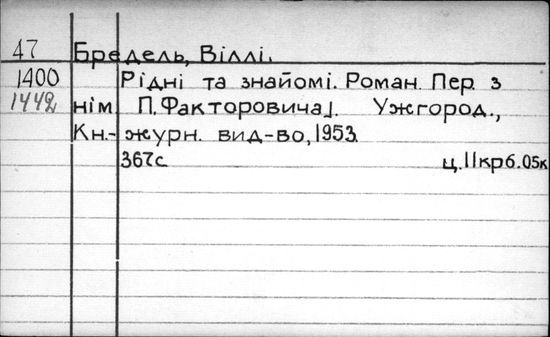 47 Бредель, Віллі.
1400 Рідні та знайомі. Роман. Пер. з
1442 нім П. Факторовича]. Ужгород.,
Кн.-журн. вид-во, 1953.
367с. ц. 11крб. 05к